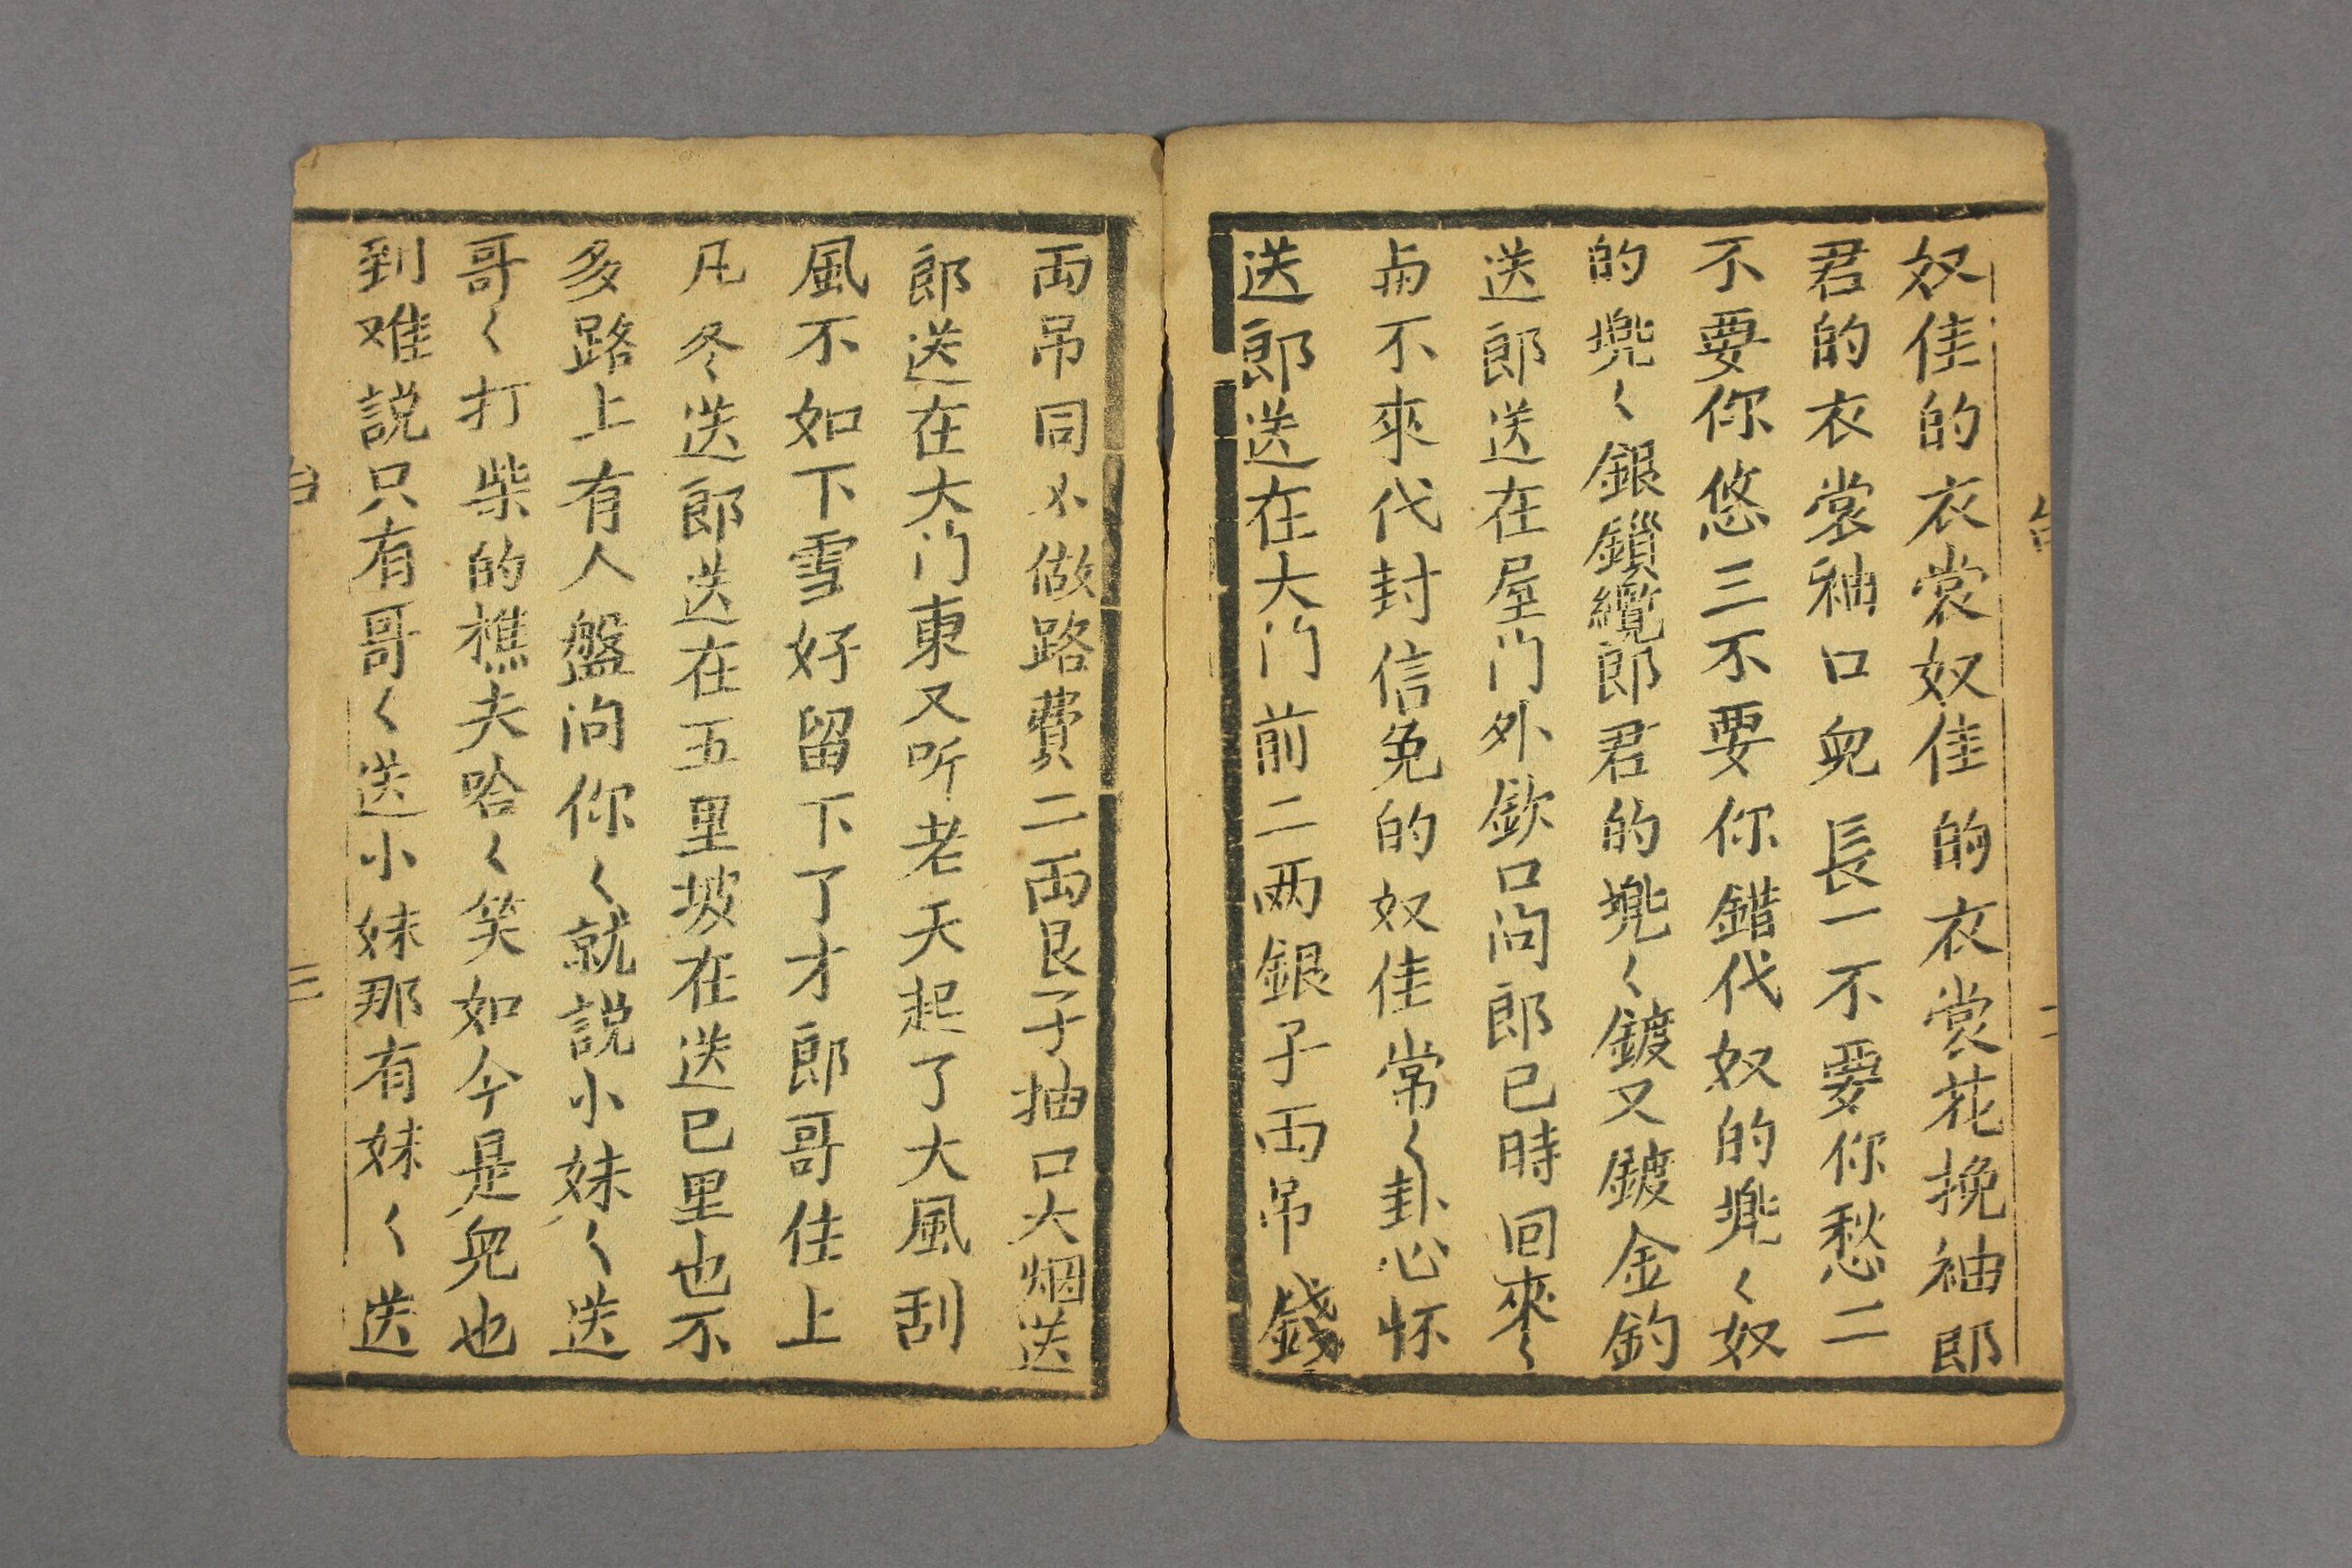 奴佳的衣裳奴佳的衣裳花挽袖郎
君的衣裳袖口皃長一不要你愁二
不要你悠三不要你錯代奴的兠〻奴
的兠〻銀鎖纜郎君的兠〻鍍又鍍金鈎
送郎送在屋门外欽口问郎已時回來〻
甪不來代封信免的奴佳常〻卦心怀
送郎送在大门前二两銀子両吊錢
両吊同㐅做路費二両艮子抽口大烟送
郎送在大门東又听老天起了大風刮
風不如下雪好留下了才郎哥住上
凡冬送郎送在五里坡在送巳里也不
多路上有人盤问你〻就説小妹〻送
哥〻打柴的樵夫哈〻笑如今是皃也
到难説只有哥〻送小妹那有妹〻送
三